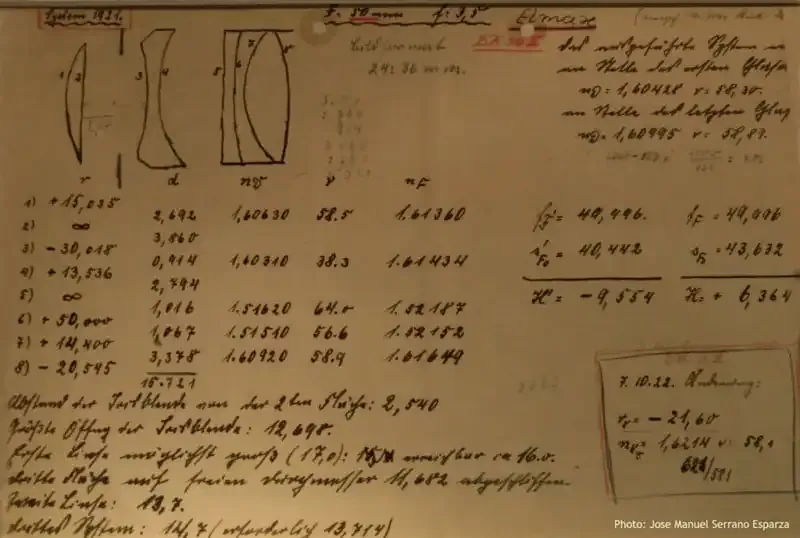 System 1921. F = 50 mm f: 3,5 Elmax
Bildformat
24:36 mm.
das ausgeführte System
an Stelle des ersten Glases
nD = 1,60428 v = 58,30.
an Stelle des letzten Glas
nD = 1,60995 v = 58,89.
1 2 3 4 5 6 7 8
r d nD v nF
1) + 15,035
2,692 1,60630 58.5 1.61360
2) ∞
3,860
3) - 30,018
0,914 1,60310 38.3 1.61434
4) + 13,536
2,794
5) ∞
1,016 1.51620 64.0 1.52187
6) + 50,000
1,067 1.51510 56.6 1.52152
7) + 14,400
3,378 1.60920 58.9 1.61649
8) - 20,545
15.721
= 49,496. fF = 49,996
= 40,442 sF = 43,632
H' = - 9,554 H = + 6,364
7.10.22. Änderung:
r8 = - 21,60
= 1,6214 v:
Abstand der Irisblende von der 2ten Fläche: 2,540
Größte Öffng der Irisblende: 12,698.
Erste Linse möglichst groß (17,0): erreichbar ca 16.0.
dritte Fläche auf freien Durchmesser 11,682 abgeschliffen.
Zweite Linse: 13,7.
drittes System: 14,7 (erforderlich 13,714)
Photo: Jose Manuel Serrano Esparza